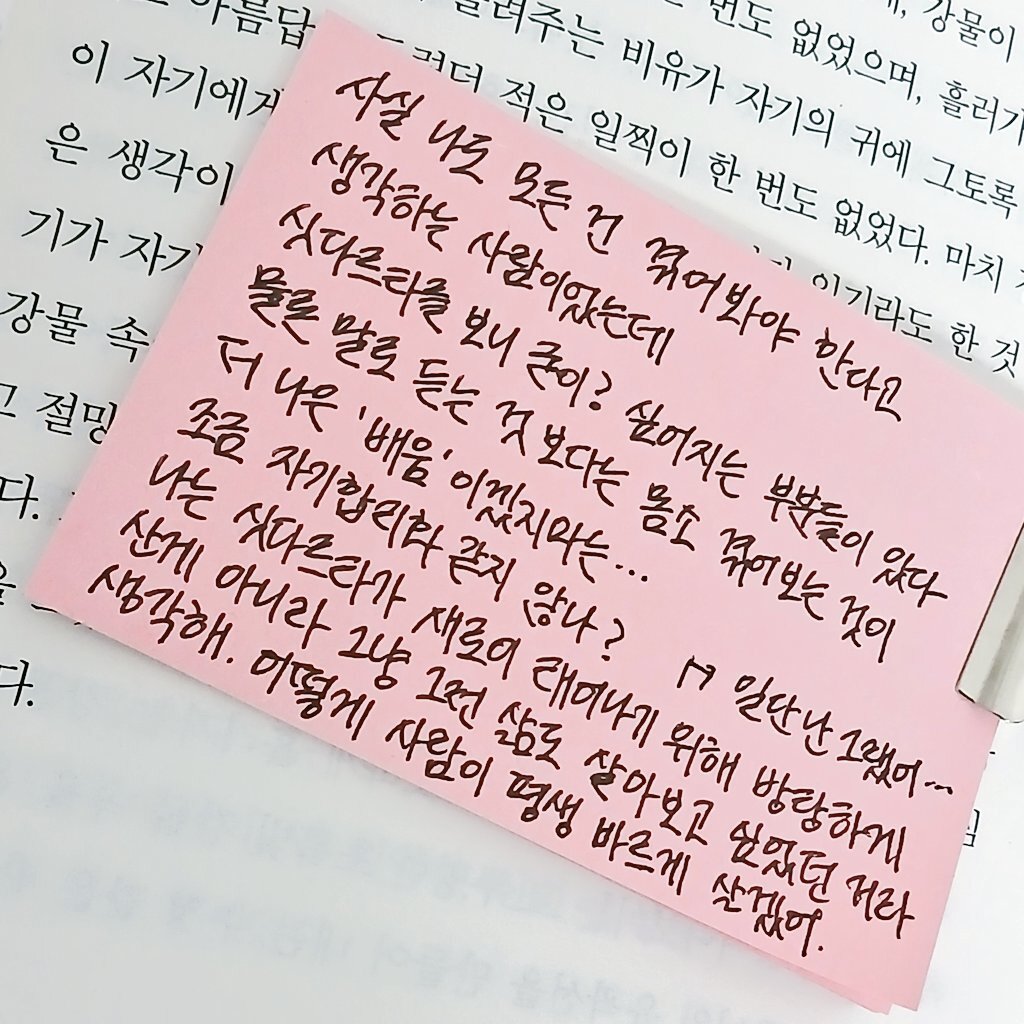 번도 없었으며, 흘러가
이 자기에게
적은 일찍이 한 번도 없었다. 마치
들려주는 비유가 자기의 귀에 그토록
은 생각이
기가 자기
강물 속
그 절망
다.
다.
사실 나도 모든 건 겪어봐야 한다고
생각하는 사람이었는데
싯다르타를 보니 굳이? 싶어지는 부분들이 있다
물론 말로 듣는 것 보다는 몸소 겪어보는 것이
더 나은 '배움'이겠지마는...
조금 자기합리화 같지 않나?
일단 난 그랬어...
나는 싯다르타가 새로이 태어나기 위해 방랑하게
산게 아니라 그냥 그런 삶도 살아보고 싶었던 거라
생각해. 어떻게 사람이 평생 바르게 살겠어.